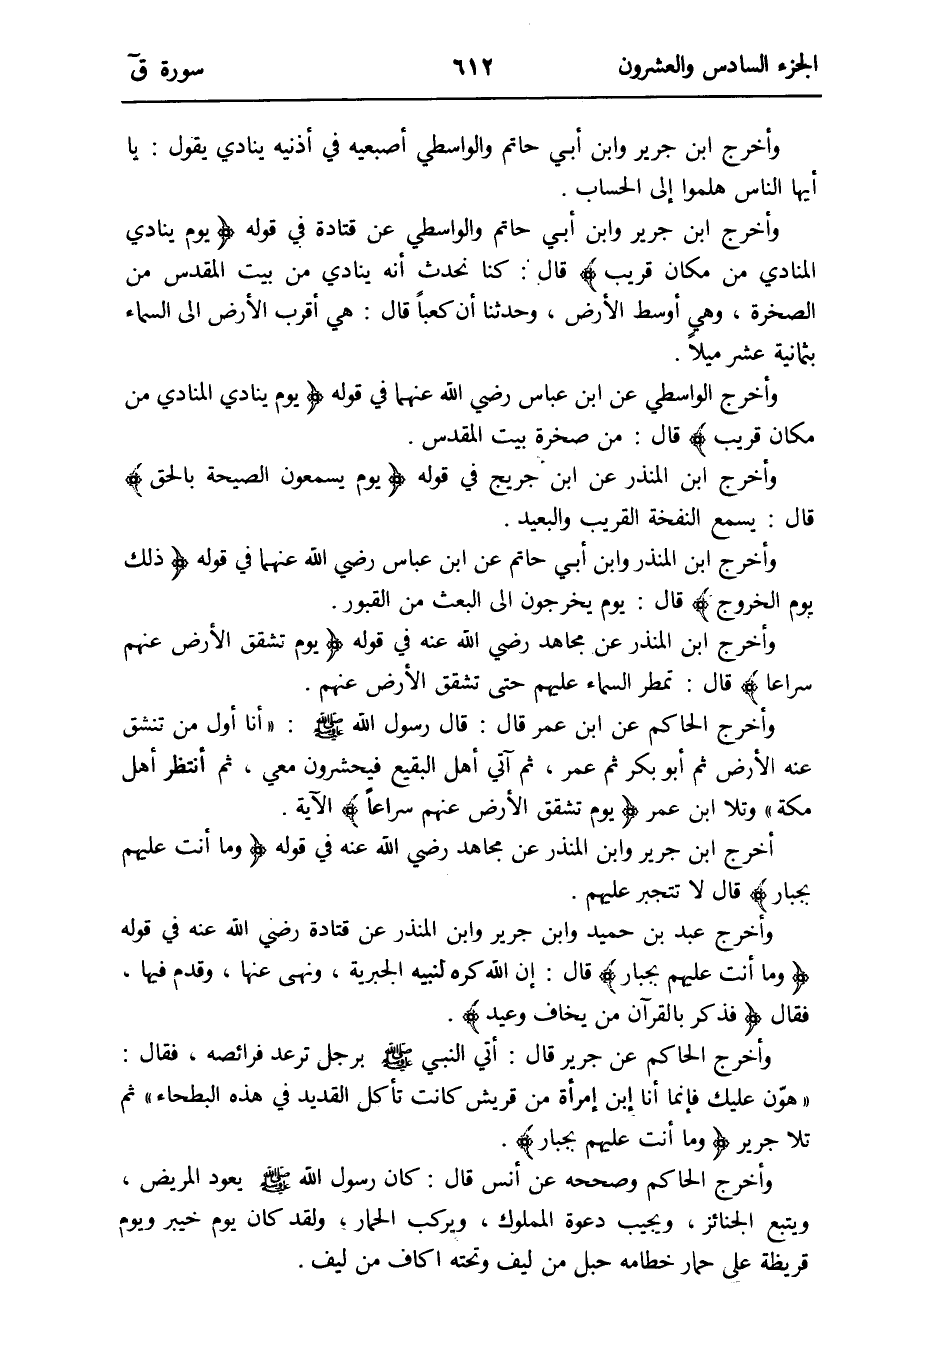 الجزء السادس والعشرون ٦١٢ سورة قۤ
وأخرج ابن جرير وابن أبـي حاتم والواسطي أصبعيه في أذنيه ينادي يقول : يا
أيها الناس هلموا إلى الحساب .
وأخرج ابن جرير وابن أبـي حاتم والواسطي عن قتادة في قوله ﴿ يوم ينادي
المنادي من مكان قريب ﴾ قال : كنا نحدث أنه ينادي من بيت المقدس من
الصخرة ، وهي أوسط الأرض ، وحدثنا أن كعباً قال : هي أقرب الأرض الى السماء
بثمانية عشر ميلاً .
وأخرج الواسطي عن ابن عباس رضي الله عنهما في قوله ﴿ يوم ينادي المنادي من
مكان قريب ﴾ قال : من صخرة بيت المقدس .
وأخرج ابن المنذر عن ابن جريج في قوله ﴿ يوم يسمعون الصيحة بالحق ﴾
قال : يسمع النفخة القريب والبعيد .
وأخرج ابن المنذر وابن أبـي حاتم عن ابن عباس رضي الله عنهما في قوله ﴿ ذلك
يوم الخروج ﴾ قال : يوم يخرجون الى البعث من القبور .
وأخرج ابن المنذر عن مجاهد رضي الله عنه في قوله ﴿ يوم تشقق الأرض عنهم
سراعا ﴾ قال : تمطر السماء عليهم حتى تشقق الأرض عنهم .
وأخرج الحاكم عن ابن عمر قال : قال رسول الله ﷺ : « أنا أول من تنشق
عنه الأرض ثم أبو بكر ثم عمر ، ثم آتي أهل البقيع فيحشرون معي ، ثم أنتظر أهل
مكة » وتلا ابن عمر ﴿ يوم تشقق الأرض عنهم سراعاً ﴾ الآية .
أخرج ابن جرير وابن المنذر عن مجاهد رضي الله عنه في قوله ﴿ وما أنت عليهم
بجبار ﴾ قال لا تتجبر عليهم .
وأخرج عبد بن حميد وابن جرير وابن المنذر عن قتادة رضي الله عنه في قوله
﴿ وما أنت عليهم بجبار ﴾ قال : إن الله كره لنبيه الجبرية ، ونهى عنها ، وقدم فيها ،
فقال ﴿ فذكر بالقرآن من يخاف وعيد ﴾ .
وأخرج الحاكم عن جرير قال : أتي النبي ﷺ برجل ترعد فرائصه ، فقال :
« هوّن عليك فإنما أنا إبن إمرأة من قريش كانت تأكل القديد في هذه البطحاء » ثم
تلا جرير ﴿ وما أنت عليهم بجبار ﴾ .
وأخرج الحاكم وصححه عن أنس قال : كان رسول الله ﷺ يعود المريض ،
ويتبع الجنائز ، ويجيب دعوة المملوك ، ويركب الحمار ؛ ولقد كان يوم خيبر ويوم
قريظة على حمار خطامه حبل من ليف وتحته اكاف من ليف .